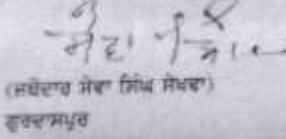 ਸੇਵਾ ਸਿੰਘ
(ਜਥੇਦਾਰ ਸੇਵਾ ਸਿੰਘ ਸੇਖਵਾਂ)
ਗੁਰਦਾਸਪੁਰ